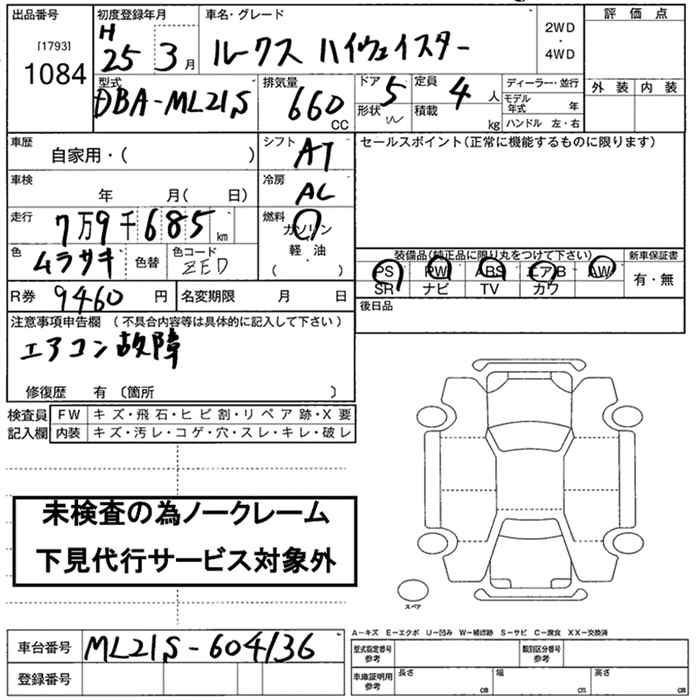 出品番号 初度登録年月 車名・グレード 評価点
[1793] H 2WD
1084 25 3月 ルークス ハイウェイスター ・
4WD
型式 排気量 ドア 定員 ディーラー・並行 外装 内装
DBA-ML21S 660 CC 5 4人 モデル年式 年
形状 積載 kg ハンドル 左・右
車歴 シフト セールスポイント(正常に機能するものに限ります)
自家用・( ) AT
車検 冷房
年 月( 日) AC
走行 燃料
7万9千685km ガソリン
色 ムラサキ 色替 色コード ZED 軽・油 装備品(純正品に限り丸をつけて下さい) 新車保証書
( ) PS PW ABS エアB AW 有・無
R券 9460円 名変期限 月 日 SR ナビ TV カワ
注意事項申告欄 (不具合内容等は具体的に記入して下さい) 後日品
エアコン故障
修復歴 有 〔箇所 〕
検査員 FW キズ・飛石・ヒビ割・リペア跡・X要
記入欄 内装 キズ・汚レ・コゲ・穴・スレ・キレ・破レ
未検査の為ノークレーム
下見代行サービス対象外
スペア
A-キズ E-エクボ U-凹み W-補修跡 S-サビ C-腐食 XX-交換済
車台番号 ML21S-604136 型式指定番号 参考 類別区分番号 参考
登録番号 車庫証明用 参考 長さ cm 幅 cm 高さ cm